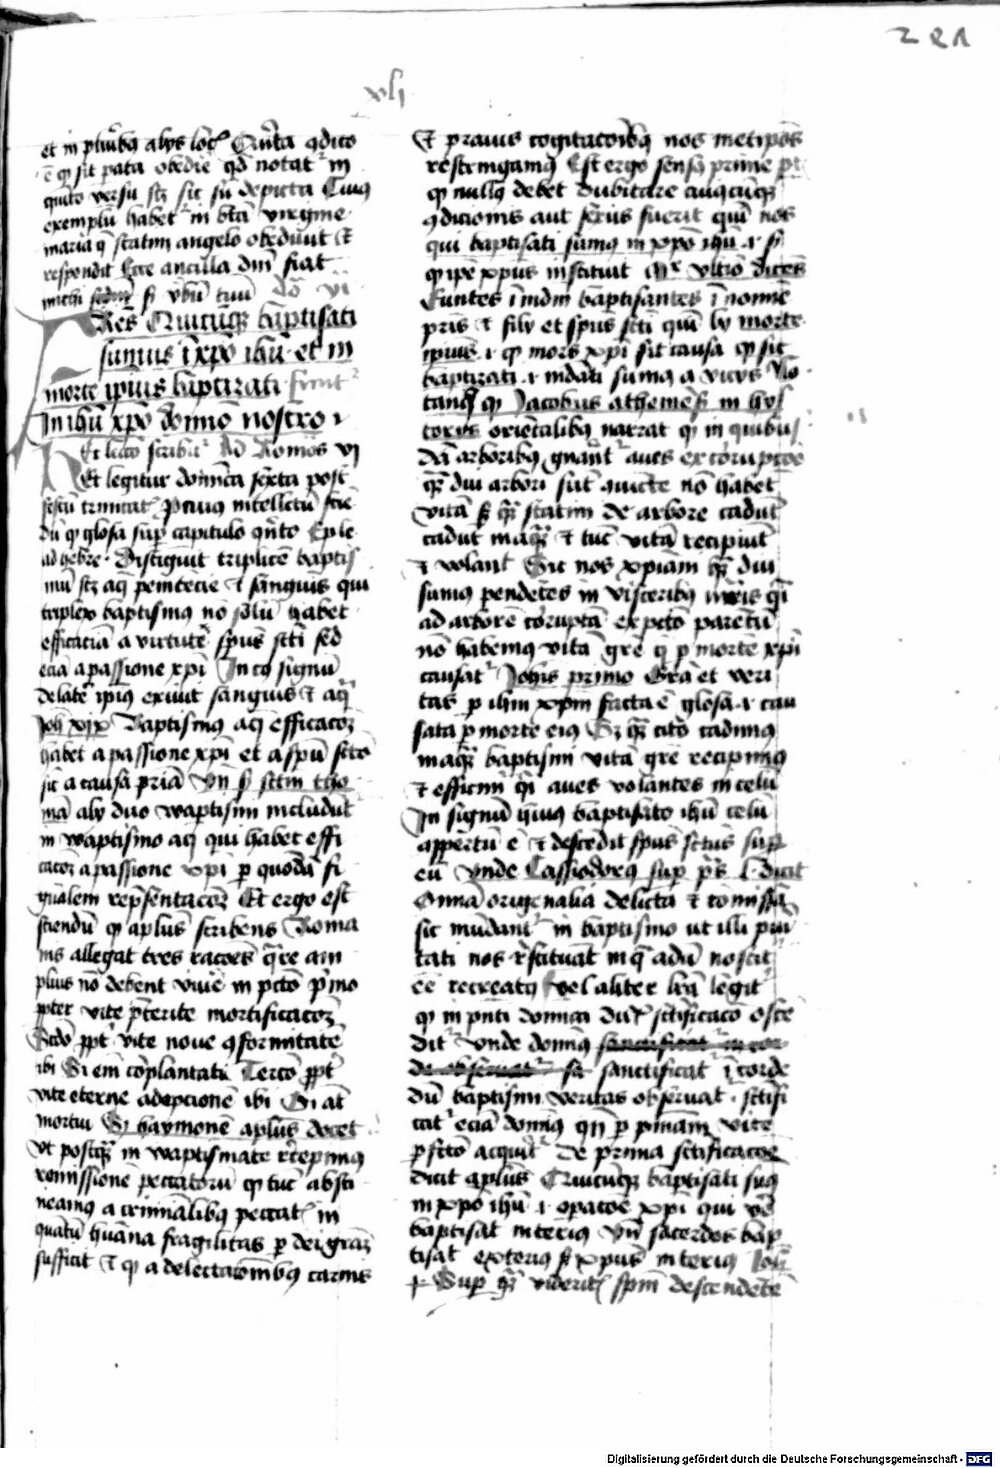 221
xlj
et in plurib9 alijs loc' Qu̅ta 9dico
e̅ q sit p̅ata obedie̅ qd notat' in
qui̅to versu scz sic su̅ depicta Cui9
exemplu̅ habet' in bt̅a virgine
maria q̅ statim angelo obediuit et
respondit Ecce ancilla dn̅i fiat
michi scdm̅ v̅bu̅ tuu̅ Do̅ vi
Fr̅es Quicu̅q3 baptisati
sumus i̅ xp̅o ih̅u et in
morte ipius baptizati
In ih̅u xp̅o domi̅o nostro
Et lc̅o scribit' Ad Romo̅s vj
Et legitur domi̅ca sexta post
festu̅ trinitat'
du̅ q glosa sup̅ capitulo qu̅to Ep̅le
ad hebre̅ distinguit triplice̅ baptis
mu̅ scz aq̅ penite̅cie et sangui̅s qui
triplex baptism9 no̅ solu̅ habet
efficacia̅ a virtute sp̅us sc̅ti sed
ecia̅ a passione xp̅i In c9 signu̅
de lat̅e ip̅i9 exiuit sanguis et aq̅
Joh̅ xix Baptism9 aq̅ efficacia̅
habet a passione xp̅i et a sp̅u sc̅to
sic̅ a causa p̅ria̅ Vn̅ scdm̅ tho
ma̅ alij duo waptismi includu̅t'
in waptismo aq̅ qui habet effi
cacia̅ a passione xp̅i p quoda̅ fi
guralem rep̅sentaco̅z Et ergo est
sciendu̅ q ap̅lus scribens Roma
nis allegat tres raco̅es q̅re am
plius no̅ debent viue̅ in p̅cto p̅mo
p̅pter vite p̅terite mortificaco̅z
Scdo̅ pp̅t' vite noue 9formitate̅
ibi Si em̅ co̅plantati Tercio pp̅t'
vite eterne adepcione̅ ibi Si at̅
mortui Si haymone̅ ap̅lus docet
vt postq̅ in waptismate recepim9
remissione̅ peccatoru̅ q tu̅c absti
neam9 a crimi̅alib9 peccat' in
quatu̅ hu̅ana fragilitas p dei gr̅az
sufficit et q a delectaco̅nib9 carnis
Et prauis cogitaco̅ib9 nos metip̅os
restringam9 Est ergo sens9 prime pt̅
q null9 debet dubitare cuiuscu̅q3
9dicionis aut sex9 fuerit qui̅ nos
qui baptisati sum9 in xp̅o ih̅u
q ip̅e xp̅us instituit Mr' vltio̅ dice̅s
Euntes i̅ mdm̅ baptisantes i̅ no̅m̅e
pr̅is et filij et sp̅us sc̅ti qui̅ in morte
ip̅ius .i. q mors xp̅i sit causa q sit
baptizati .i. mdati sum9 a vicijs No
tand' q Jacobus athenie̅s in hys
torijs orie̅talib9 narrat q in quibus
da̅ arboribus gn̅ant' aues ex corupc̅oe
q̅ diu arbori su̅t aniecte no̅ habe̅t
vita̅ si q̅ statim de arbore cadu̅t
cadu̅t et tu̅c vita̅ recipiu̅t
et volant Sic nos xp̅iani q̅ diu
sum9 pende̅tes in viscerib9 mr̅is q̅i
ad arbore̅ corupta̅ ex p̅cto parentu̅
no̅ habem9 vita̅ gr̅e q̅ p morte̅ xp̅i
causat' Joh̅is primo Gr̅a et veri
tas p ih̅m xp̅m facta e̅ glosa .i. cau
sata p morte̅ ei9 Si q̅ cito cadim9
in aq̅ baptismi vita̅ gr̅e recipim9
et efficim̅ q̅i aues volantes in celu̅
In signu̅ hui9 baptisato ih̅u celu̅
appertu̅ e̅ et descedit sp̅us sc̅tus sup̅
eu̅ Vnde Cassiodor9 sup̅ p̅s l. dicit
Omnia originalia delicta et co̅missa
sic mundant' in baptismo ut illi puri
tati nos restituat in q̅ adu̅ noscit'
ee̅ recreat9 Vel aliter lr̅a legit'
q in p̅nti domi̅ca du̅x sc̅tificaco̅ oste̅
dit' Vnde domi̅9 sanctificat' in cor
de obseruat' sanctificat' i̅ corde
du̅ baptismi veritas obseruat' . sc̅tifi
cat' ecia̅ domi̅9 qn̅ p p̅miam vite
p̅fectio̅ acquirit' De prima sc̅tificaco̅e
dicit ap̅lus Quicu̅q3 baptisati sum9
in xp̅o ih̅u .i. opaco̅e xp̅i qui ve̅
baptisat interi9 Vn̅ sacerdos bap
tisat exteri9 sed xp̅us interi9 Joh̅
Sup̅ q̅ videritis sp̅m descendente̅
Digitalisierung gefördert durch die Deutsche Forschungsgemeinschaft - DFG